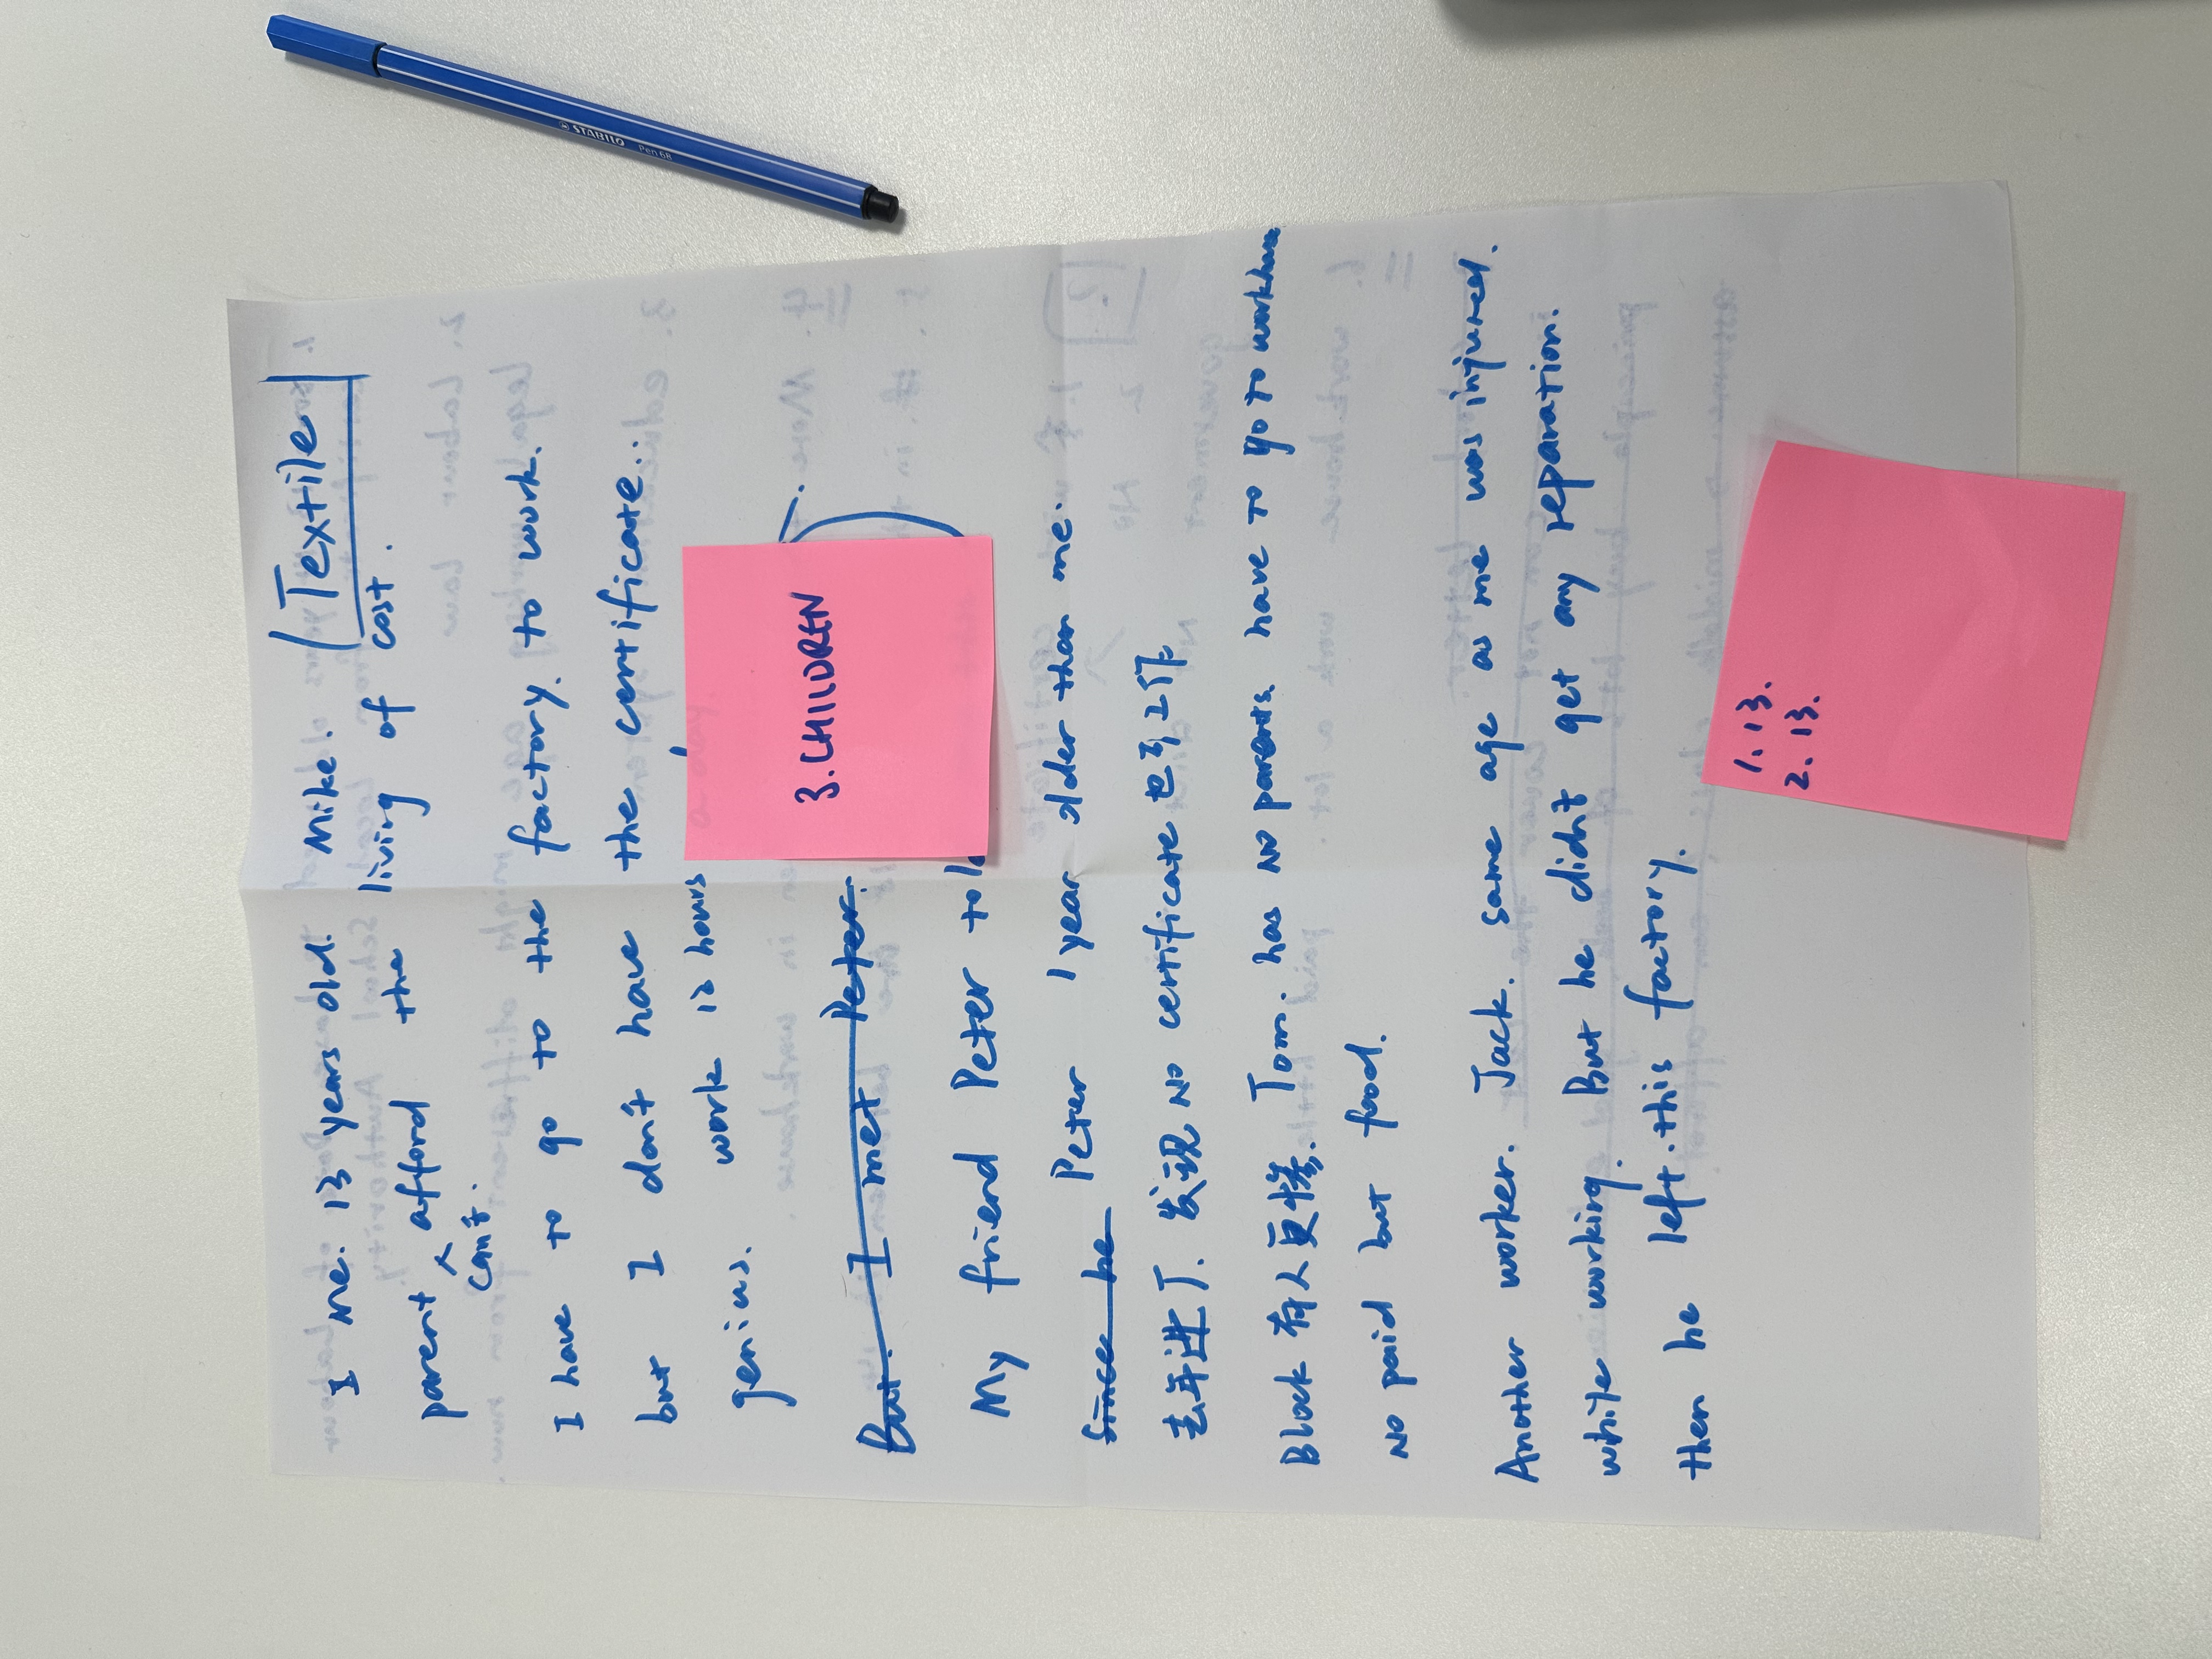 Textile
I me. 13 years old. Mike.
parent afford the living of cost.
can't.
I have to go to the factory. to work.
but I don't have the certificate..
work 12 hours
genius.
But. I met Peter.
My friend Peter told
Since he Peter 1 year older than me.
去年进厂. 发现 No certificate 也可以
Block 有人更惨. Tom. has no parents. have to go to workhouse
No paid but food.
Another worker. Jack. same age as me was injured.
white working. But he didn't get any reparation.
then he left. this factory.
3. CHILDREN
1. 13.
2. 13.
STABILO Pen 68